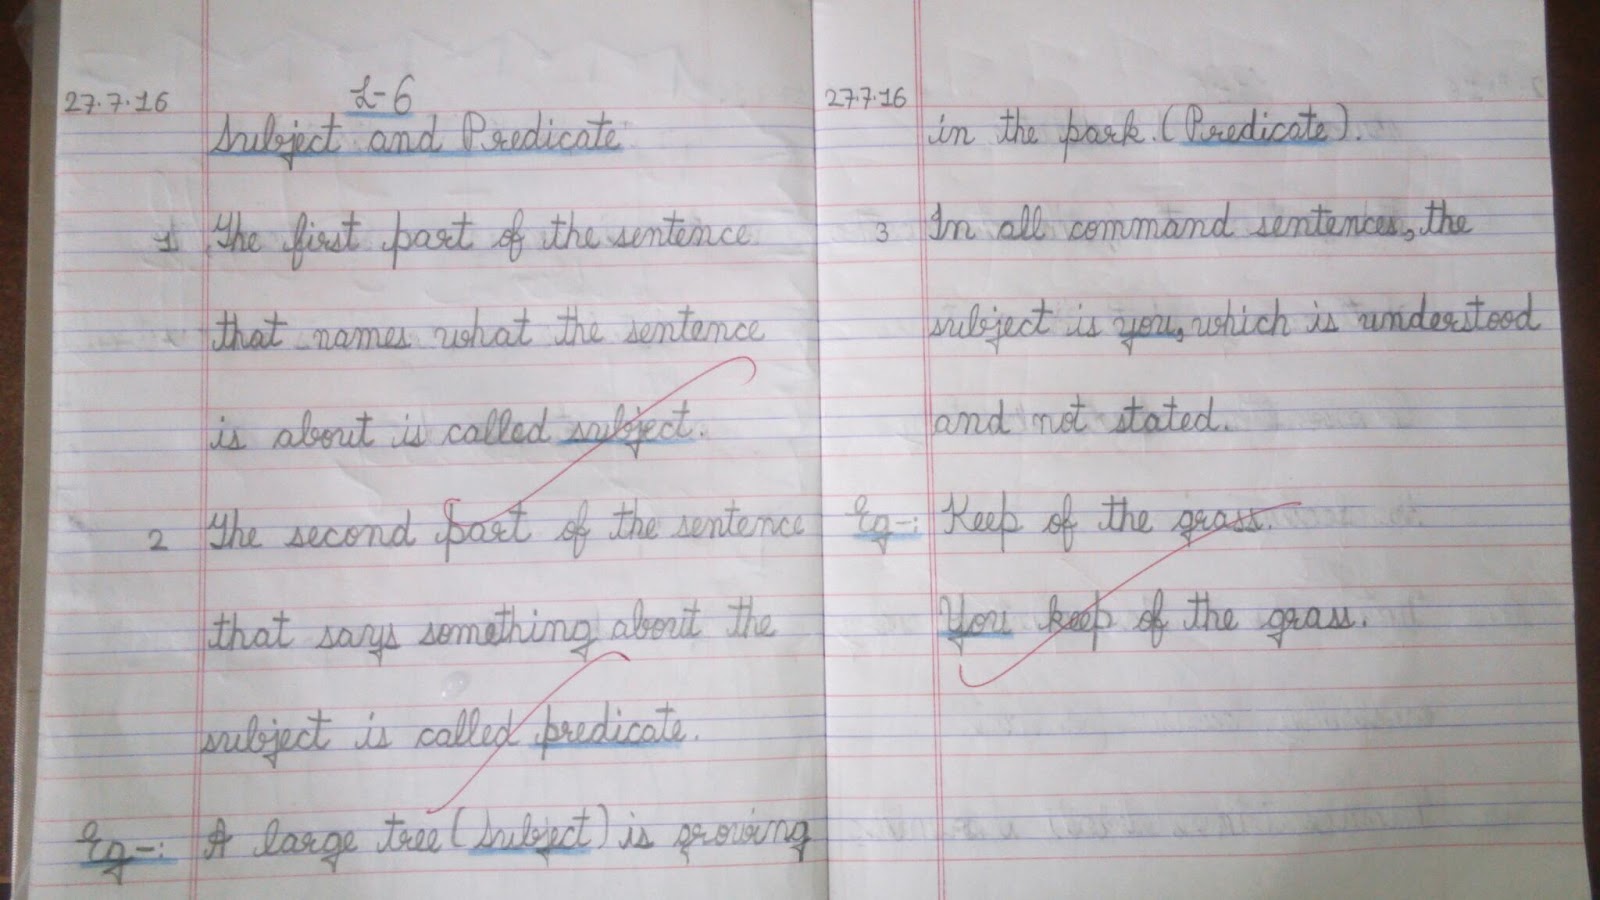 27.7.16
L-6
Subject and Predicate
1 The first part of the sentence
that names what the sentence
is about is called subject.
2 The second part of the sentence
that says something about the
subject is called predicate.
Eg-: A large tree (Subject) is growing
27.7.16
in the park. (Predicate).
3 In all command sentences, the
subject is you, which is understood
and not stated.
Eg-: Keep of the grass.
You keep of the grass.